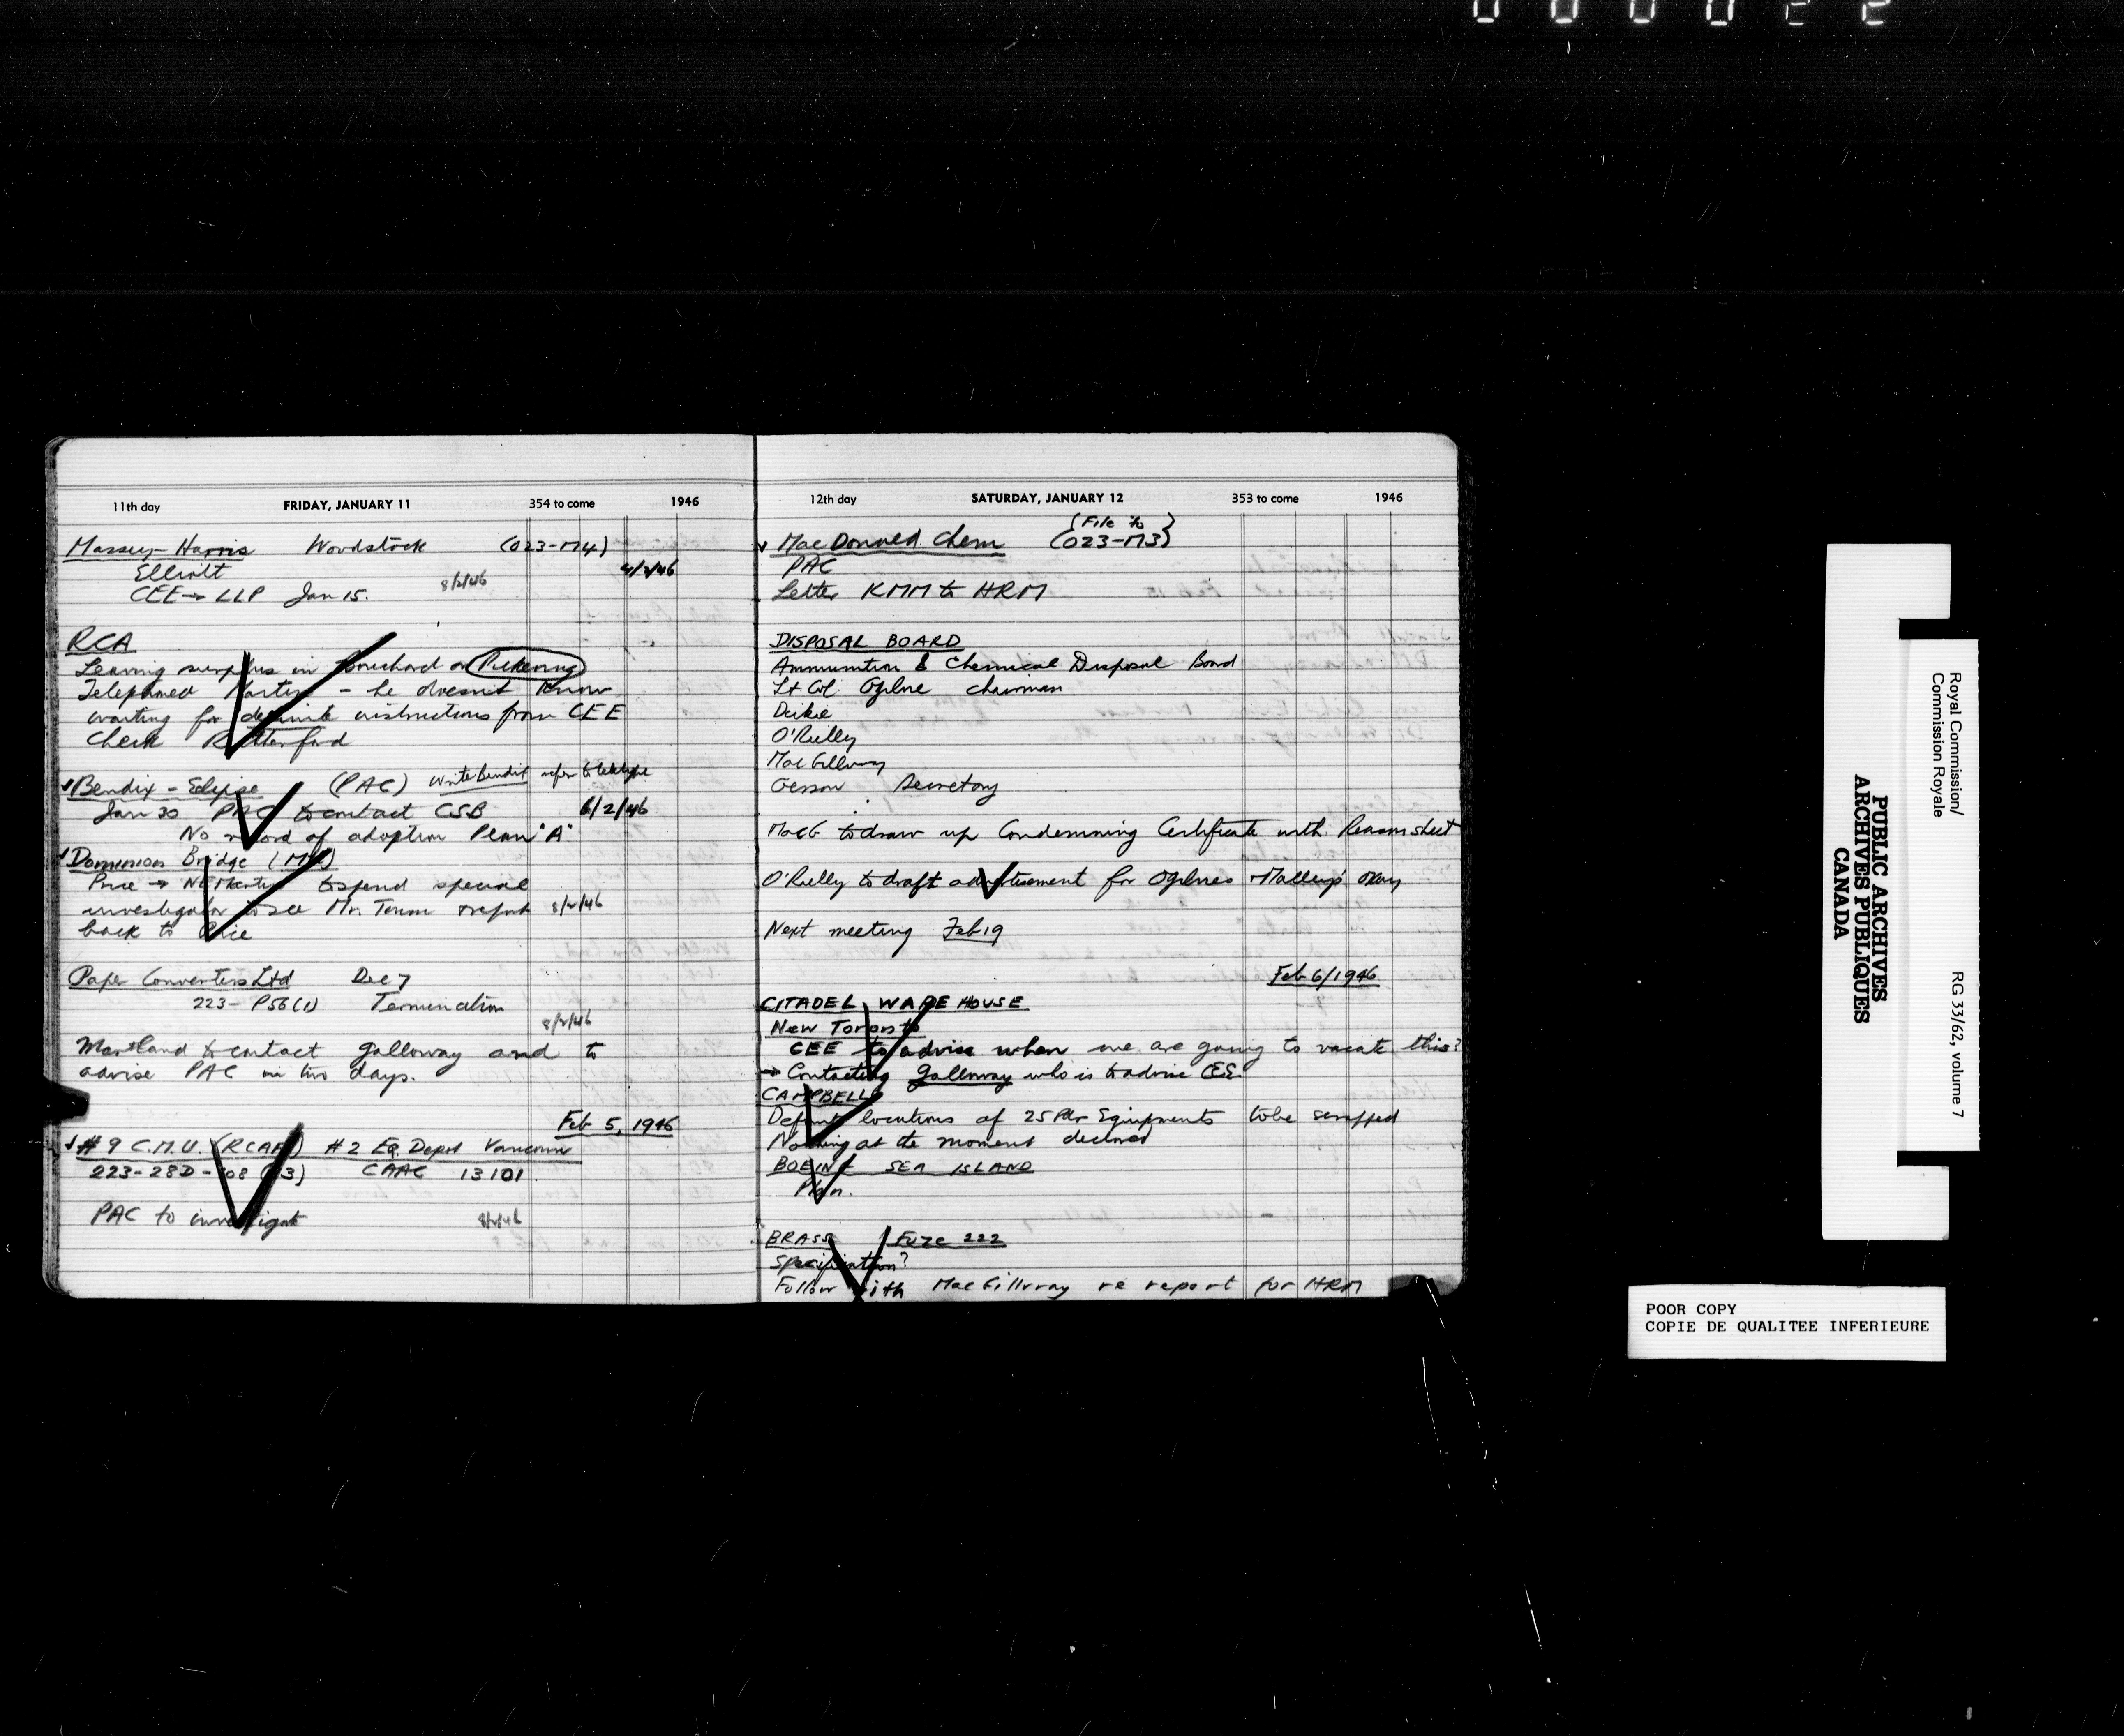 000022
11th day FRIDAY, JANUARY 11 354 to come 1946
Massey-Harris Woodstock (023-M4)
Elliott 4/2/46
CEE → LLP Jan 15. 8/2/46
RCA
Leaving surplus in Bouchard or Pickering
Telephoned Martin - he doesn't know
waiting for definite instructions from CEE
Check Rutterford
Bendix - Eclipse (PAC) Write Bendix refer to teletype
Jan 30 PAC to contact CSB 6/2/46
No record of adoption Plan "A"
Dominion Bridge
Price → to spend special
investigator to see Mr. report 8/2/46
back to Price
Paper Converters Ltd Dec 7
223-P56(1) Termination
8/2/46
Martland to contact Galloway and to
advise PAC in two days.
Feb 5, 1946
#9 C.M.U. (RCAF) #2 Eq. Depot Vancouver
223-28D-108 CAAC 13101
PAC to investigate 8/2/46
12th day SATURDAY, JANUARY 12 353 to come 1946
(File to)
MacDonald Chem (023-M3)
PAC
Letter KMM to HRM
DISPOSAL BOARD
Ammunition & Chemical Disposal Board
Lt Col Ogilvie chairman
Deikie
O'Reilly
MacGillvray
Gerson Secretary
MacG to draw up Condemning Certificate with Reason sheet
O'Reilly to draft advertisement for Ogilvies + Malley's okay
Next meeting Feb 19
Feb 6/1946
CITADEL WAREHOUSE
New Toronto
CEE to advise when we are going to vacate this?
→ Contacting Galloway who is to advise CEE.
CAMPBELL
Definite locations of 25 Pdr Equipments to be scrapped
Nothing at the moment declared
BOEING SEA ISLAND
Plan.
BRASS Fuze 222
Specification?
Follow with MacGillvray re report for HRM
Royal Commission/
Commission Royale
RG 33/62, volume 7
PUBLIC ARCHIVES
ARCHIVES PUBLIQUES
CANADA
POOR COPY
COPIE DE QUALITEE INFERIEURE